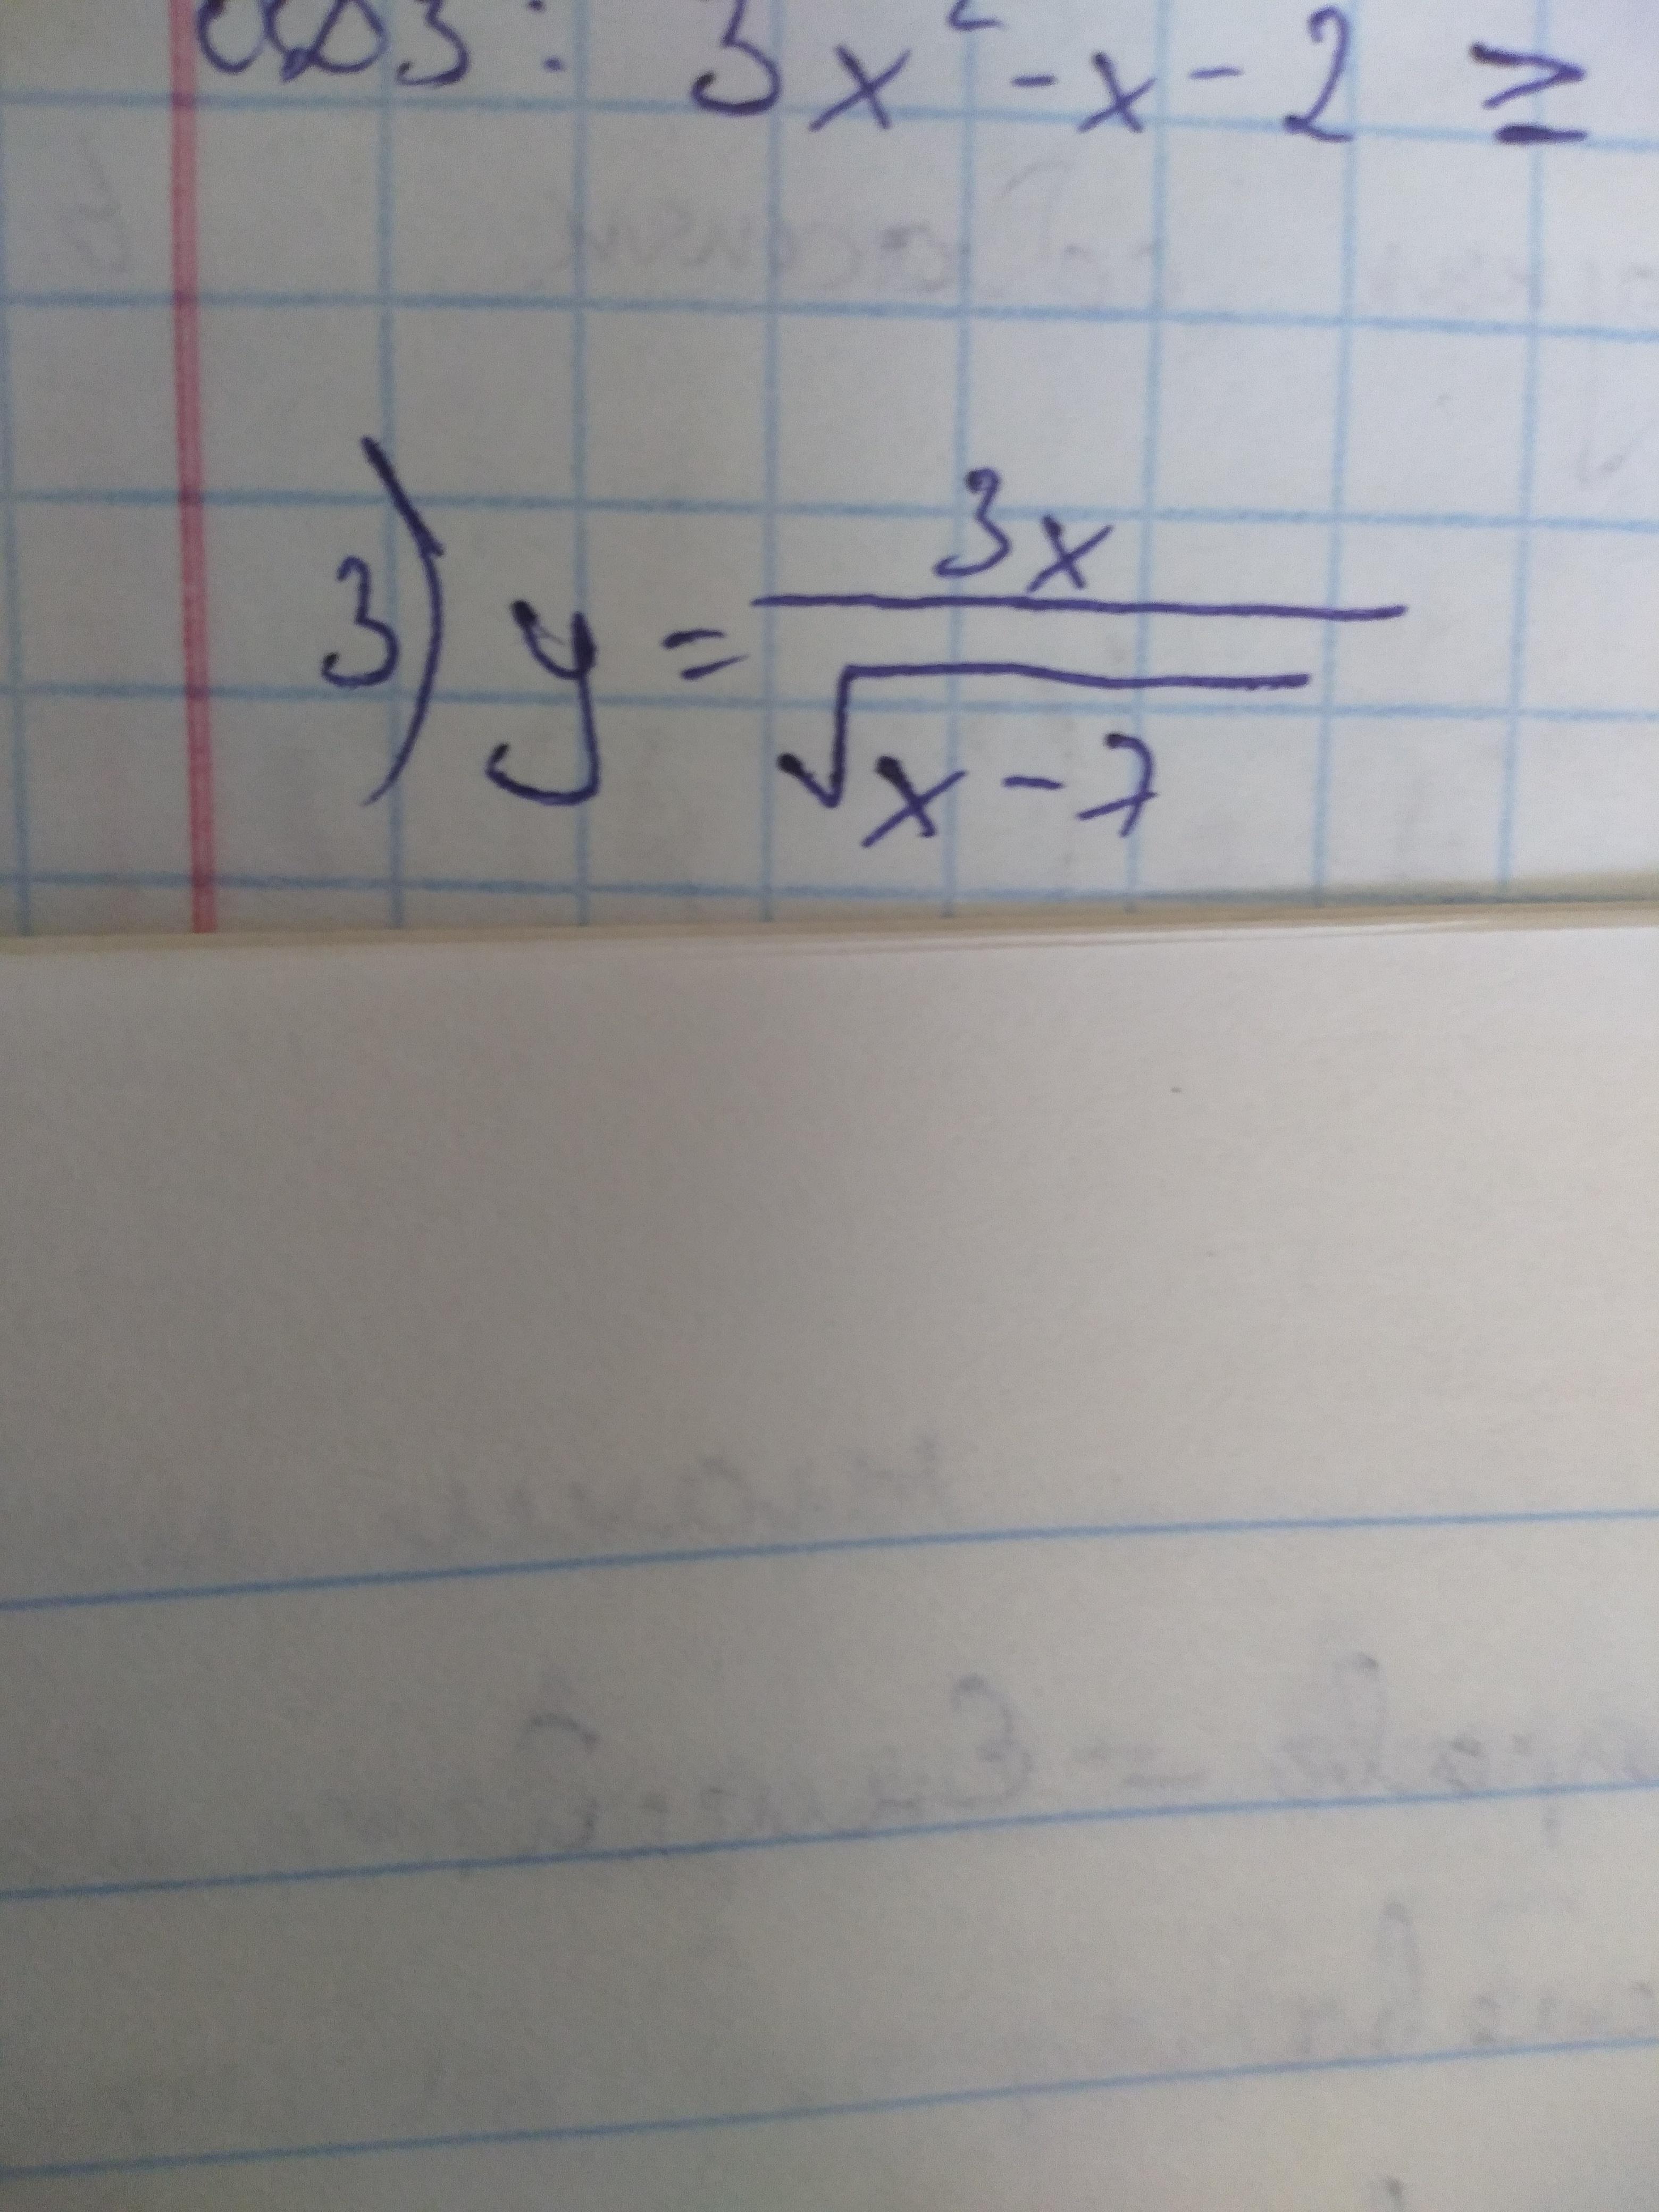 ОДЗ: 3x² - x - 2 ≥
3) y = 3x / √(x - 7)